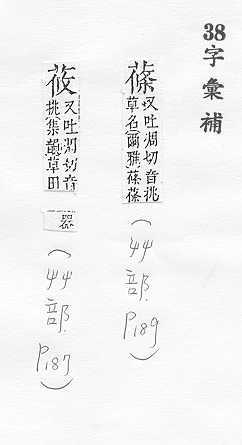 38字彙補
蓧又吐凋切音挑
草名爾雅蓧蓨
(艸部P.189)
莜又吐凋切音
挑集韻草田
器
(艸部P.187)